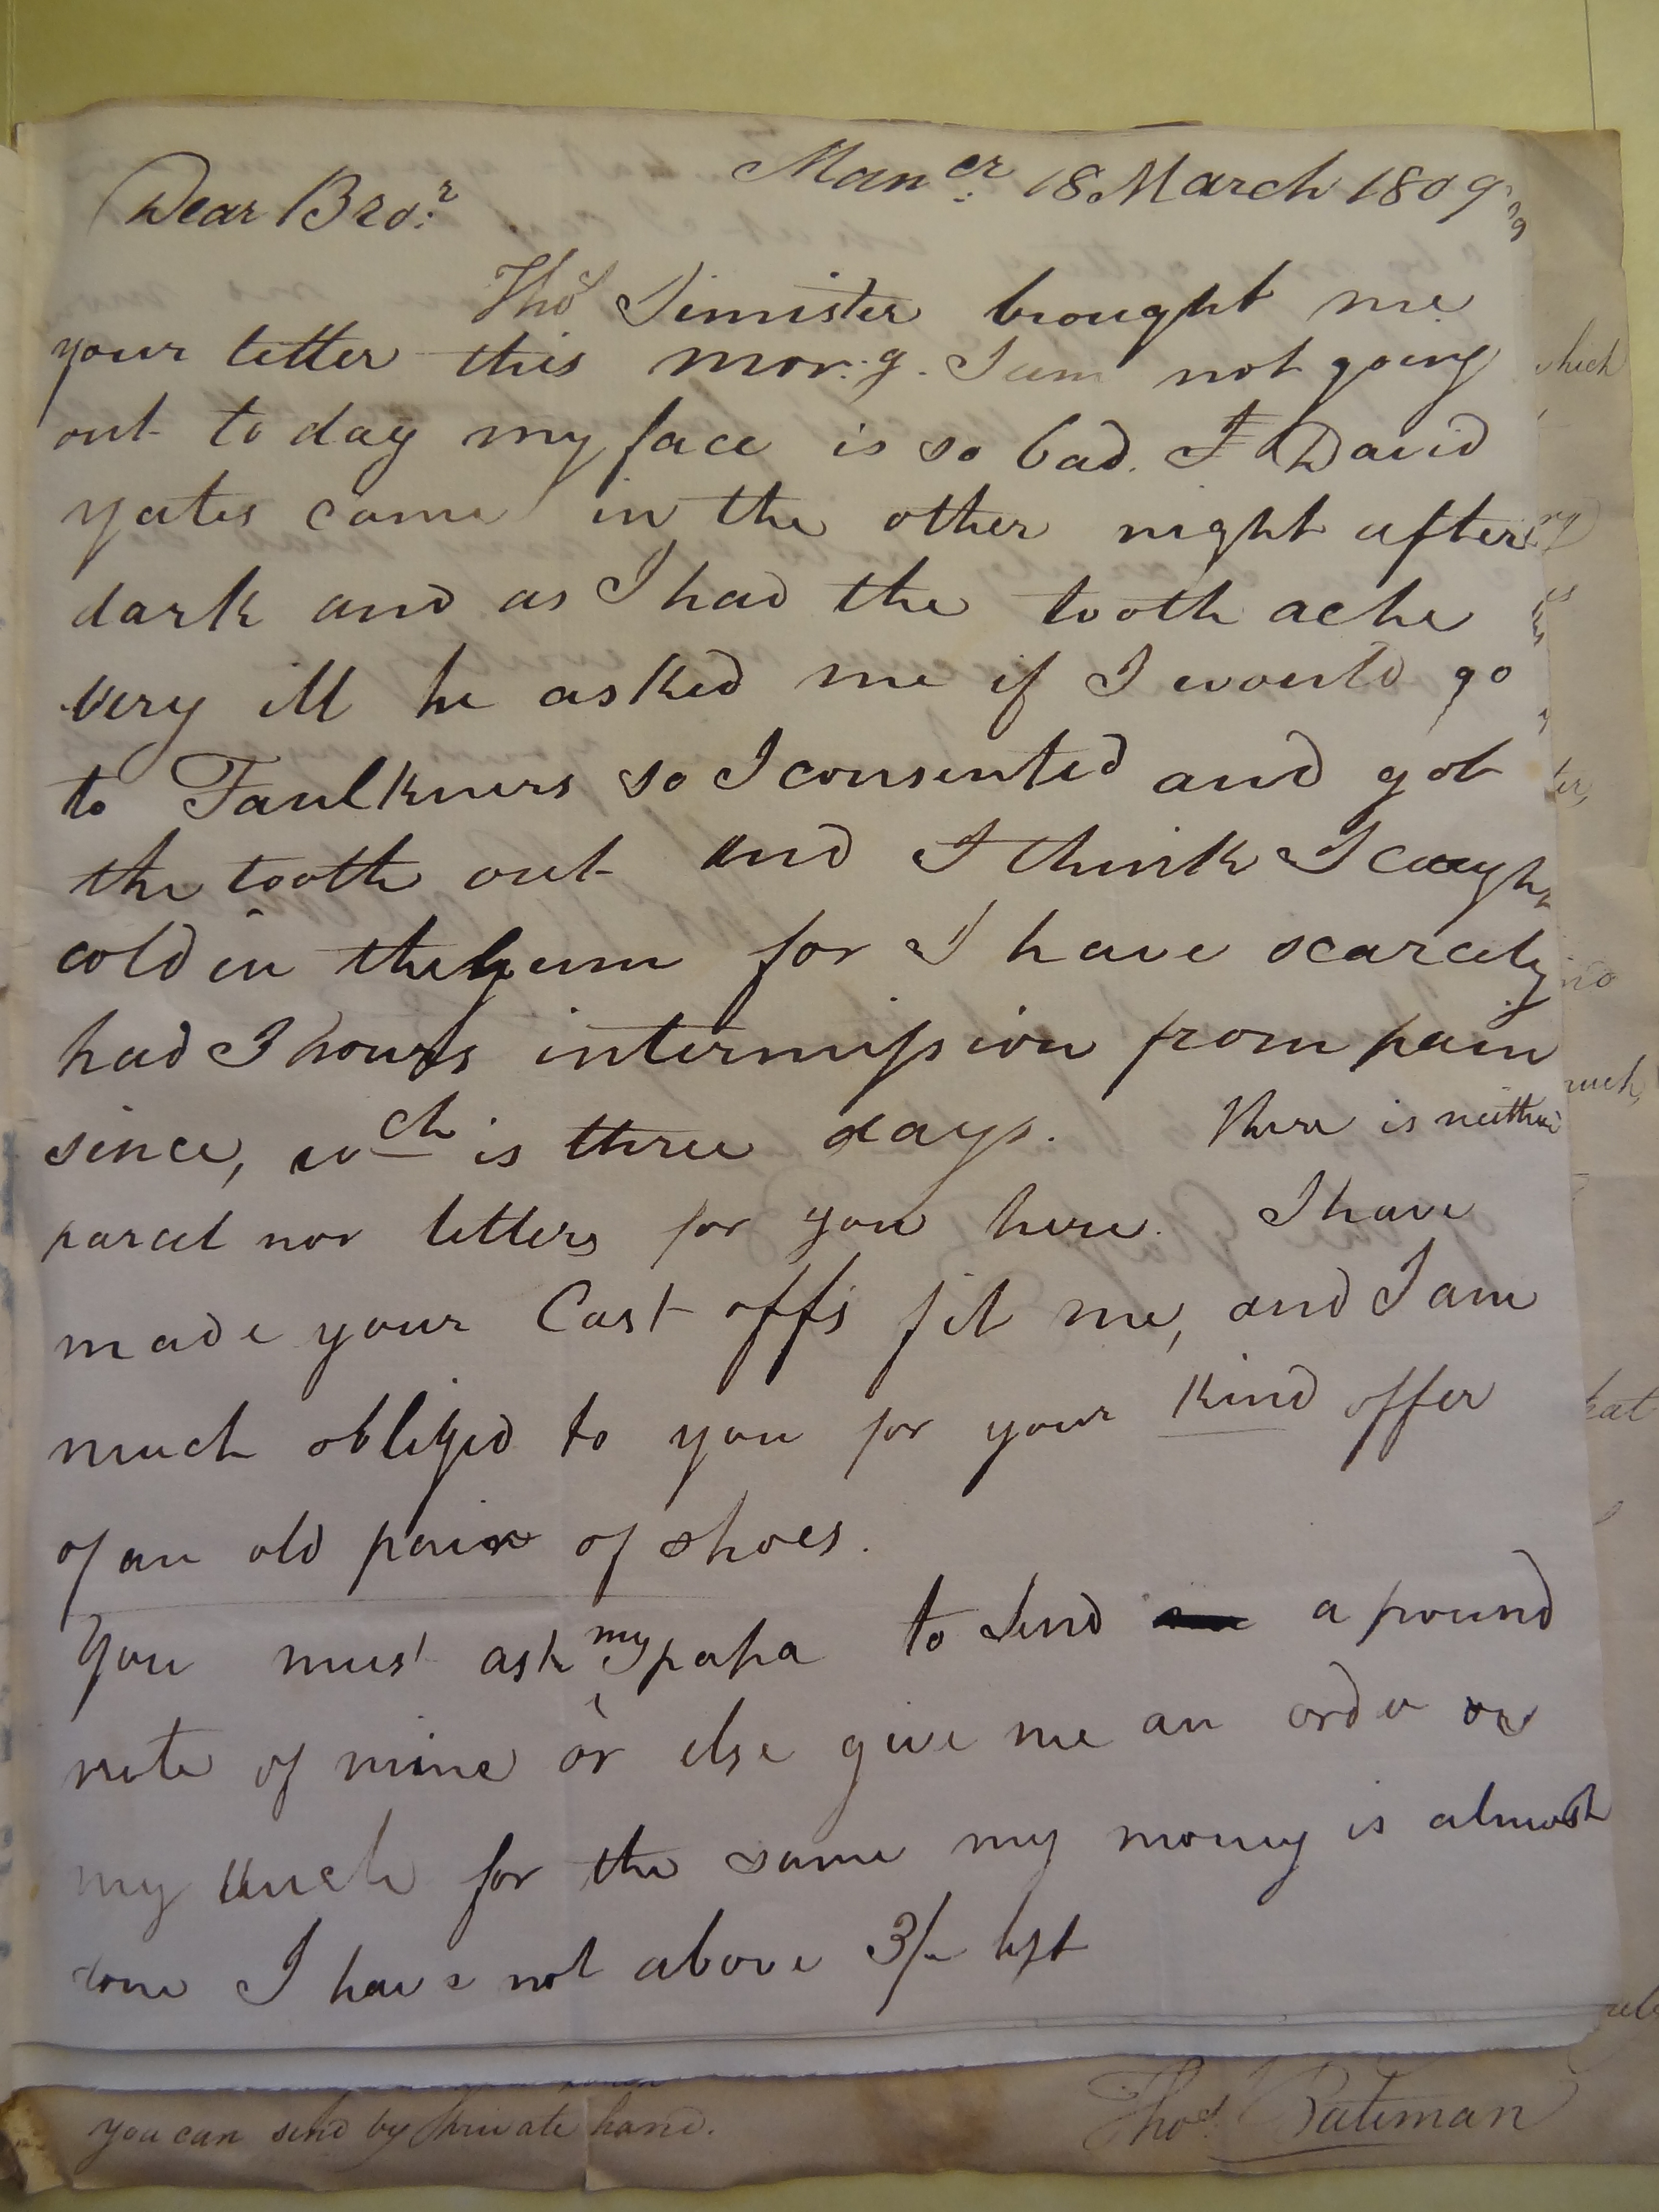 Man.er 18 March 1809
Dear Bro.r
Thos Simister brought me
your letter this mor:g. I am not going
out to day my face is so bad. I David
yates came in the other night after
dark and as I had the tooth ache
very ill he asked me if I would go
to Faulkners so I consented and got
the tooth out and I think I caught
cold in the gum for I have scarcely
had 3 hours intermission from pain
since, wch is three days. There is neither
parcel nor letters for you here. I have
made your Cast offs fit me, and I am
much obliged to you for your kind offer
of an old pair of shoes.
You must ask my papa to send a pound
note of mine or else give me an order on
my Uncle for the same my money is almost
done I have not above 3/- left
you can send by private hand.
Thos. Bateman